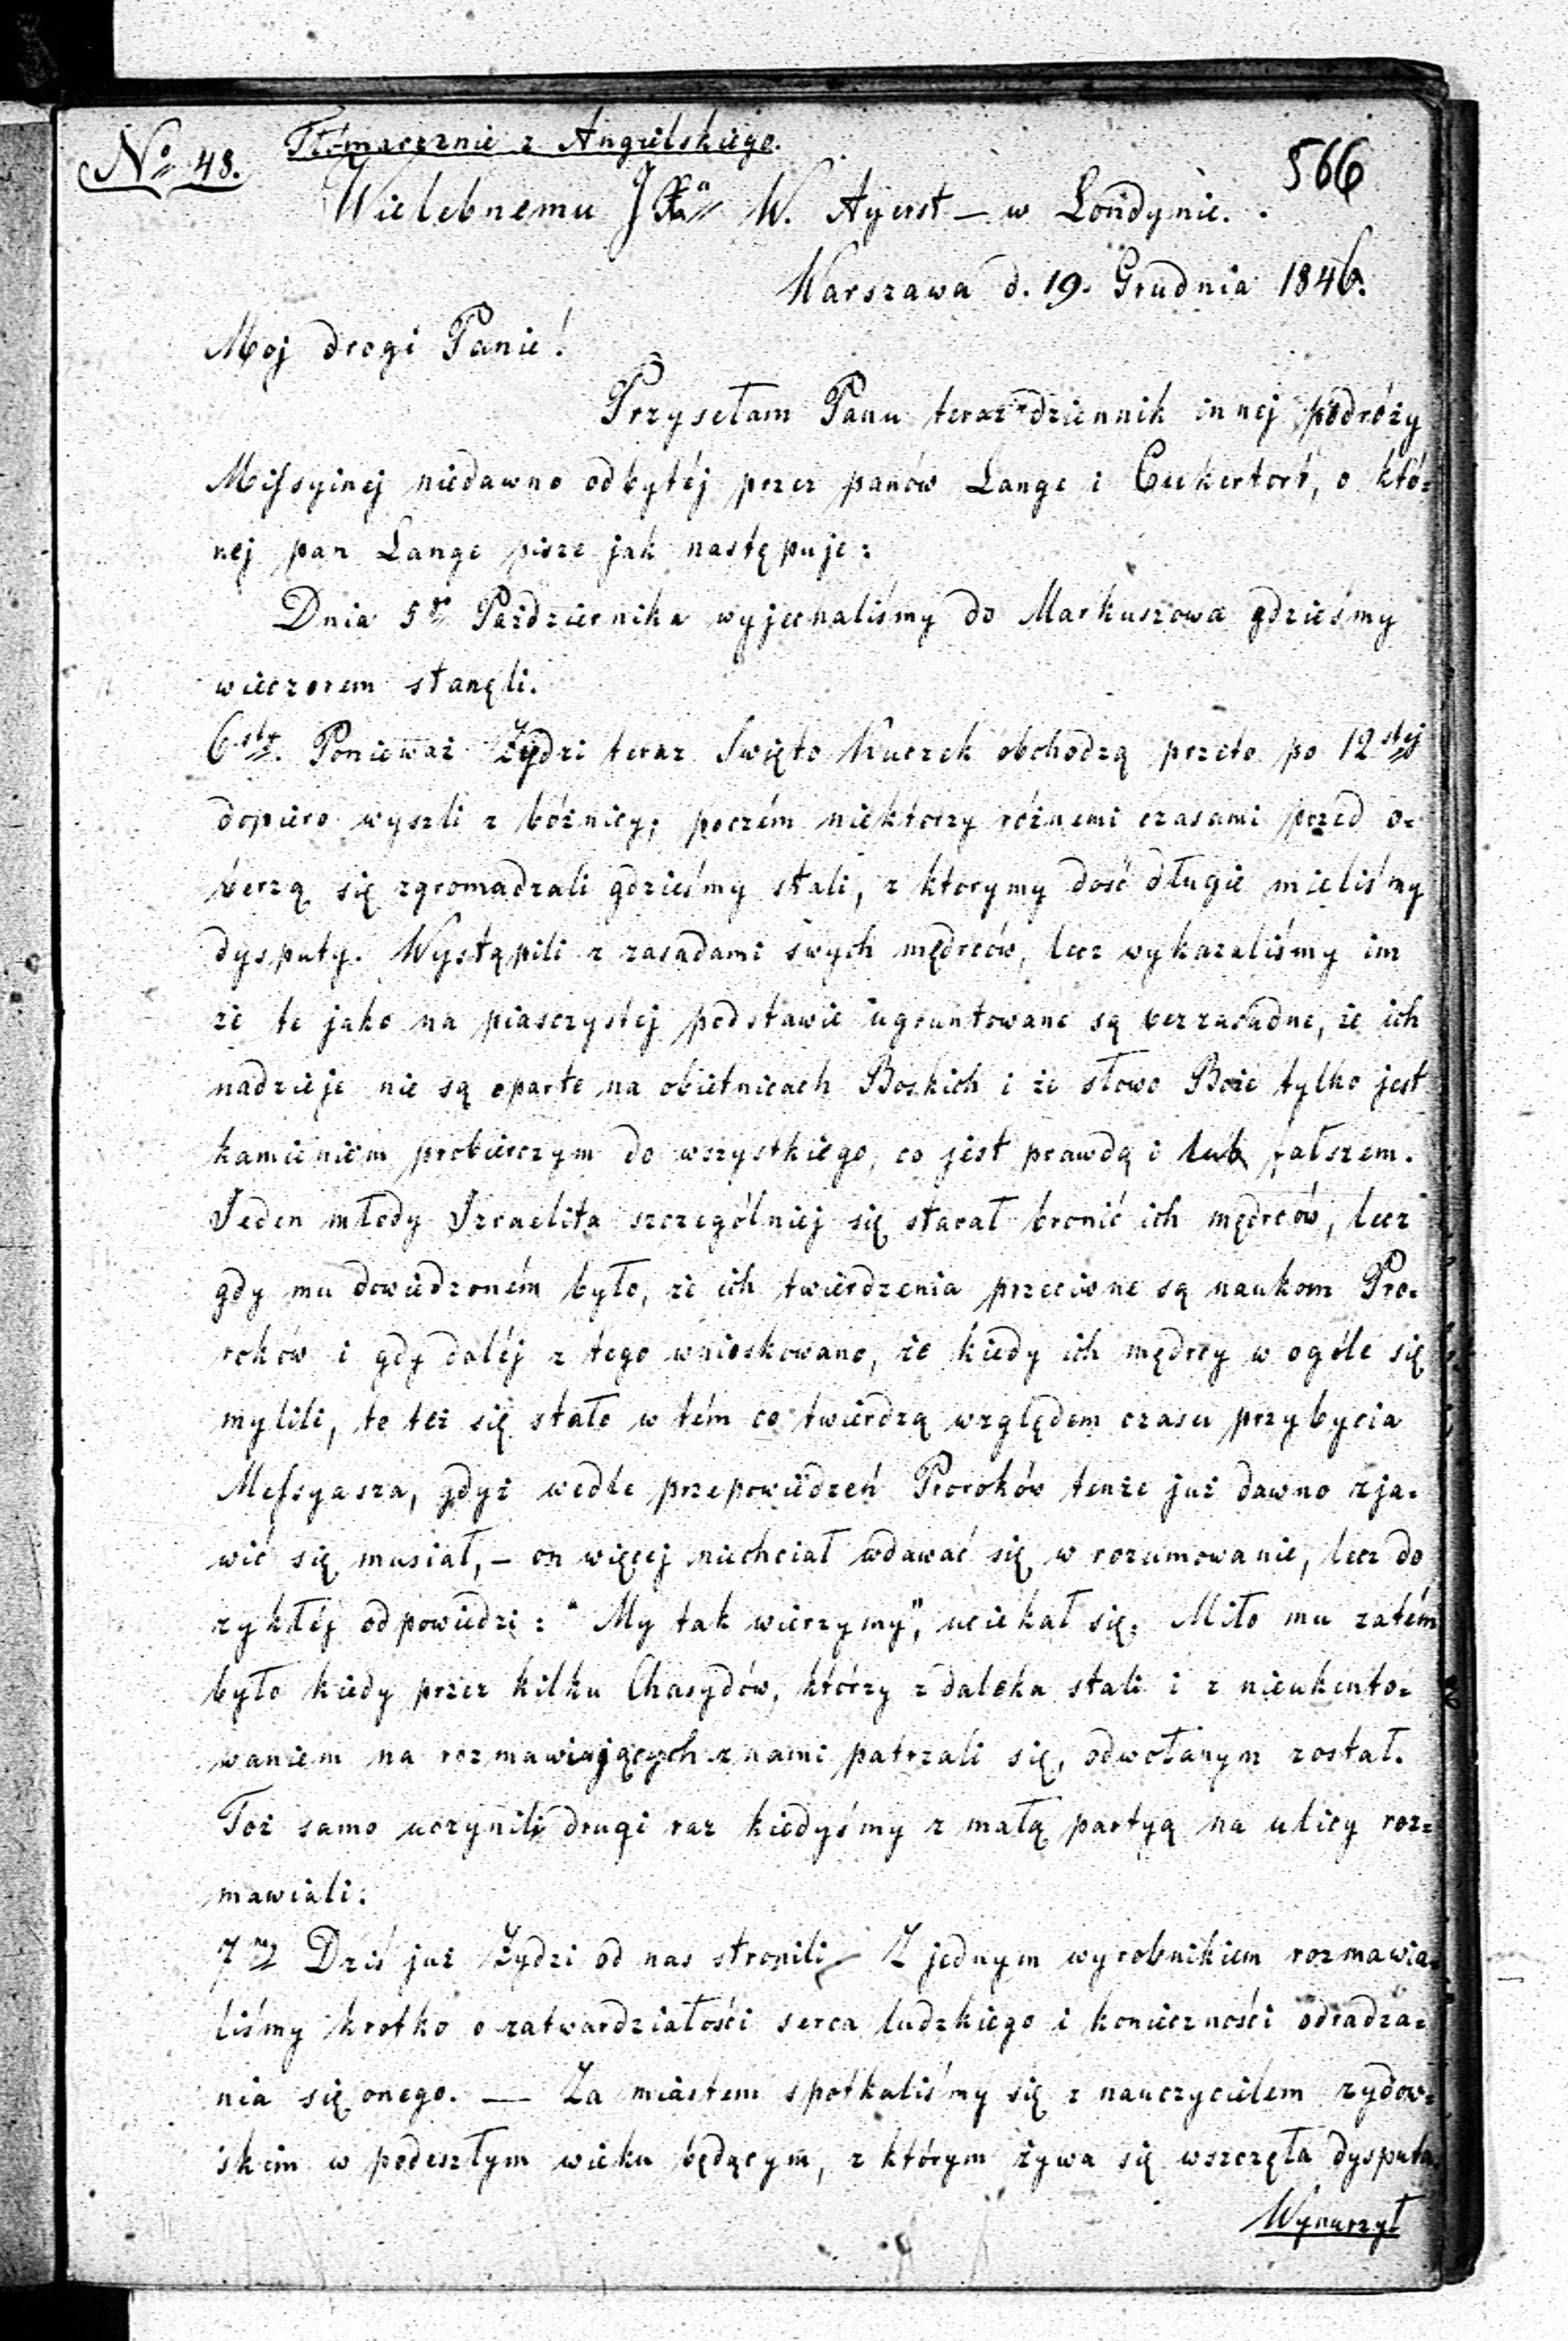 No 48. Tłómacznie z Angielskiego.
566
Wielebnemu JXu W. Ayerst – w Londynie.
Warszawa d. 19. Grudnia 1846.
Moj drogi Panie!
Przysełam Panu teraz dziennik innej podróży
Missyinej niedawno odbytéj przez panów Lange i Cuckertort, o któ=
rej pan Lange pisze jak następuje:
Dnia 5go Pażdziernika wyjechaliśmy do Markuszowa gdzieśmy
wieczorem stanęli.
6sty. Ponieważ Żydzi teraz Święto Kuczek obchodzą przeto po 12stej
dopiero wyszli z bóżnicy; poczém niektorzy róźnemi czasami przed o=
berzą się zgromadzali gdzieśmy stali, z ktorymy dość długie mieliśmy
dysputy. Wystąpili z zasadami swych mędrców, lecz wykazaliśmy im
że te jako na piasczystej podstawie ugruntowane są bezzasadne, że ich
nadzieje nie są oparte na obietnicach Boskich i że słowo Boże tylko jest
kamieniem probierczym do wszystkiego, co jest prawdą i lub fałszem.
Jeden młody Izraelita szczególniej się starał bronić ich mędrców, lecz
gdy mu dowiedzoném było, że ich twierdzenia przeciwne są naukom Pro=
roków i gdy daléj z tego wnioskowano, że kiedy ich mędrcy w ogóle się
mylili, to też się stało w tém co twierdzą względem czasu przybycia
Messyasza, gdyż wedle przepowiedzeń Proroków tenże już dawno zja=
wić się musiał, – on więcej niechciał wdawać się w rozumowanie, lecz do
zykłéj odpowiedzi: "My tak wierzymy", uciekał się. Miło mu zatém
było kiedy przez kilku Chasydów, którzy z daleka stali i z nieukento=
waniem na rozmawiających z nami patrzali się, odwołanym został.
Toż samo uczynili drugi raz kiedyśmy z małą partyą na ulicy roz=
mawiali.
7my Dziś już Żydzi od nas stronili. Z jednym wyrobnikiem rozmawia=
liśmy krotko o zatwardziałości serca ludzkiego i konieczności odradza=
nia się onego. — Za miastem spotkaliśmy się z nauczycielem zydow=
skim w podeszłym wieku będącym, z którym żywa się wszczęła dysputa.
Wynurzył